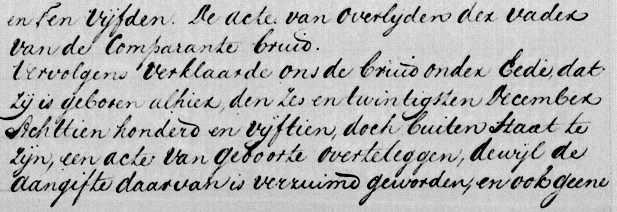 en Ten Vijfden. De acte van overlyden der vader
van de Comparante bruid.
Vervolgens verklaarde ons de bruid onder Eede, dat
zij is geboren alhier, den zes en twintigsten December
Achttien honderd en vijftien, doch buiten staat te
zijn, een acte van geboorte overteleggen, dewijl de
aangifte daarvan is verzuimd geworden, en ook geene